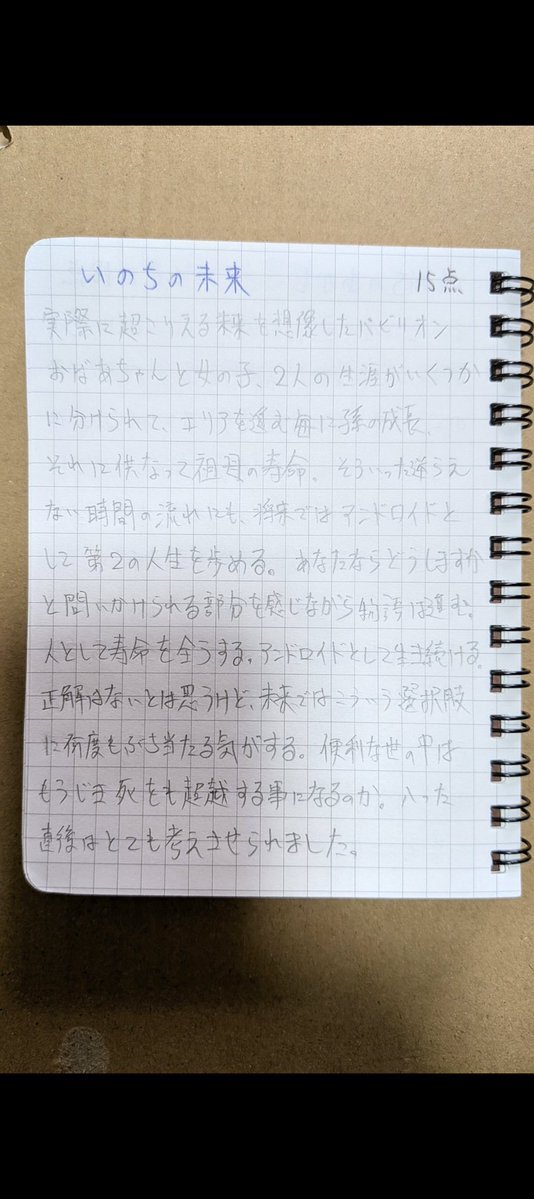 いのちの未来 15点
実際に起こりえる未来を想像したパビリオン
おばあちゃんと女の子、2人の生涯がいくつか
に分けられて、エリアを進む毎に孫の成長、
それに供なって祖母の寿命。そういった逆らえ
ない時間の流れにも、将来ではアンドロイドと
して第2の人生を歩める。あなたならどうしますか
と問いかけられる部分を感じながら物語は進む。
人として寿命を全うする。アンドロイドとして生き続ける。
正解はないとは思うけど、未来ではこういう選択肢
に何度もぶち当たる気がする。便利な世の中は
もうじき死をも超越する事になるのか。入った
直後はとても考えさせられました。